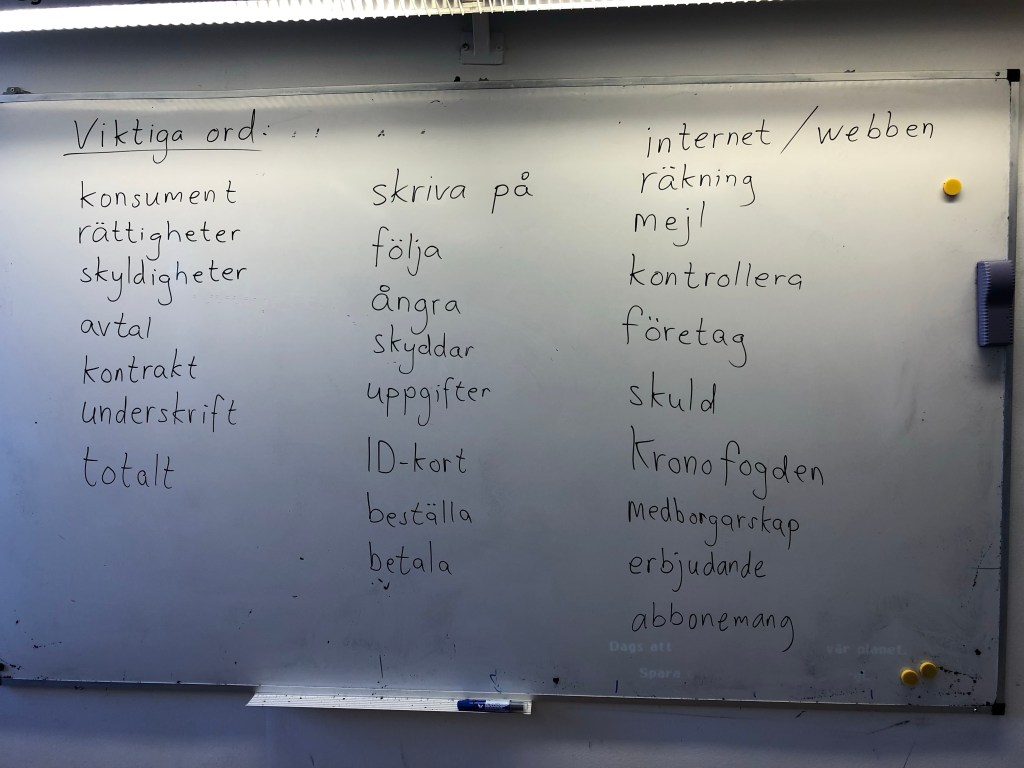 Viktiga ord:
konsument
rättigheter
skyldigheter
avtal
kontrakt
underskrift
totalt
skriva på
följa
ångra
skyddar
uppgifter
ID-kort
beställa
betala
internet / webben
räkning
mejl
kontrollera
företag
skuld
Kronofogden
medborgarskap
erbjudande
abbonemang
Dags att
vår planet.
Spara